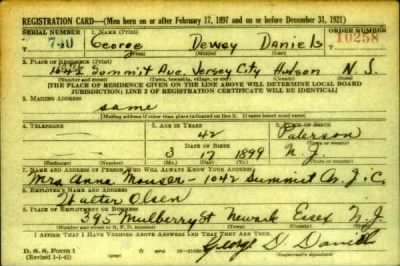 REGISTRATION CARD—(Men born on or after February 17, 1897 and on or before December 31, 1921)
SERIAL NUMBER 1. NAME (Print) ORDER NUMBER
George Dewey Daniels 10258
(First) (Middle) (Last)
2. PLACE OF RESIDENCE (Print)
1042 Summit Ave Jersey City Hudson N.J.
(Number and street) (Town, township, village, or city) (County) (State)
[THE PLACE OF RESIDENCE GIVEN ON THE LINE ABOVE WILL DETERMINE LOCAL BOARD
JURISDICTION; LINE 2 OF REGISTRATION CERTIFICATE WILL BE IDENTICAL]
3. MAILING ADDRESS
same
[Mailing address if other than place indicated on line 2. If same insert word same]
4. TELEPHONE 5. AGE IN YEARS 6. PLACE OF BIRTH
42 Paterson
DATE OF BIRTH (Town or county)
3 17 1899 N.J.
(Exchange) (Number) (Mo.) (Day) (Yr.) (State or country)
7. NAME AND ADDRESS OF PERSON WHO WILL ALWAYS KNOW YOUR ADDRESS
Mrs Anna Mouser - 1042 Summit Av. J.C.
8. EMPLOYER'S NAME AND ADDRESS
Walter Olsen
9. PLACE OF EMPLOYMENT OR BUSINESS
395 Mulberry St Newark Essex N.J.
(Number and street or R. F. D. number) (Town) (County) (State)
I AFFIRM THAT I HAVE VERIFIED ABOVE ANSWERS AND THAT THEY ARE TRUE.
D. S. S. Form 1
(Revised 1-1-42) George D. Daniels
(Registrant's signature)